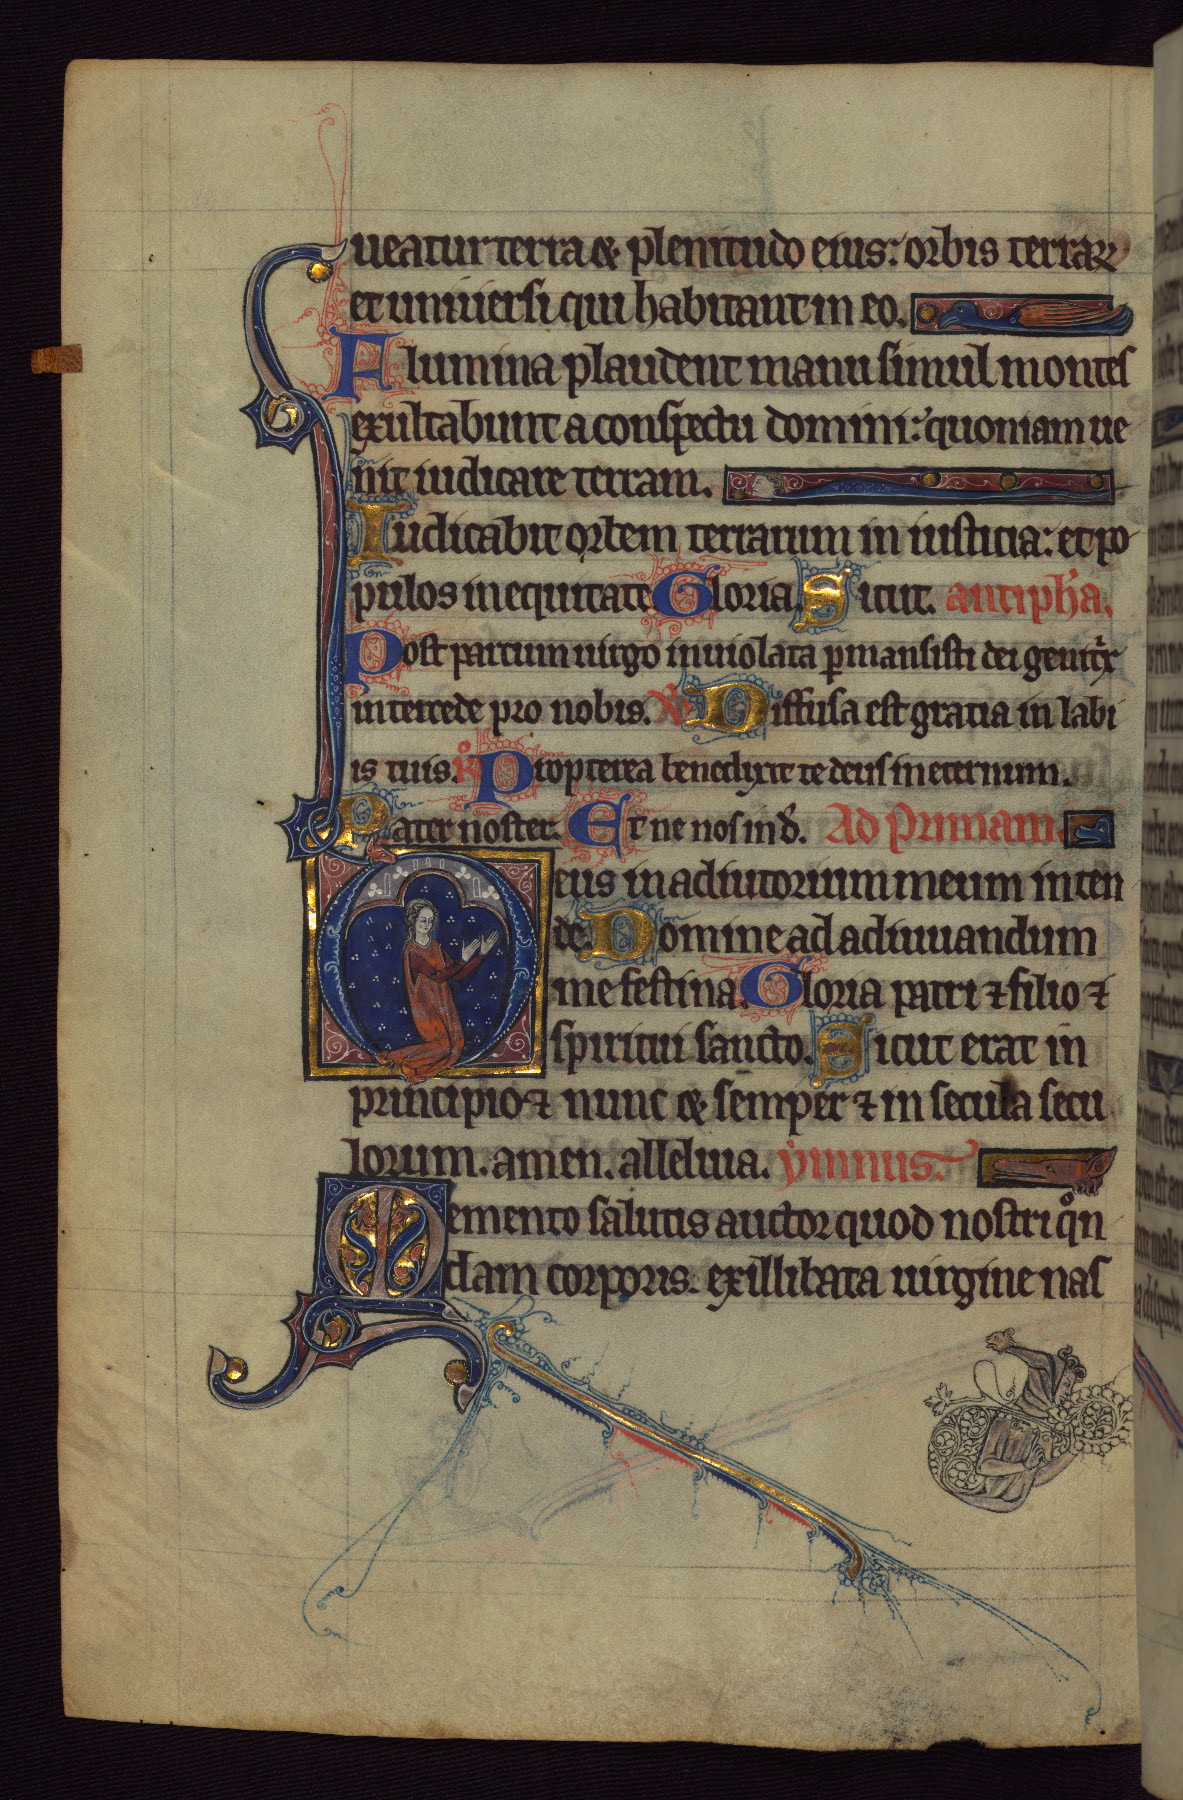 ueatur terra & plenitudo eius: orbis terraꝝ
et uniuersi qui habitant in eo.
Flumina plaudent manu simul montes
exultabunt a conspectu domini: quoniam ue
nit iudicare terram.
Iudicabit orbem terrarum in iusticia: et po
pulos in equitate Gloria. Sicut. antipha.
Post partum uirgo inuiolata ꝑmansisti dei genitx
intercede pro nobis. ℣ Diffusa est gratia in labi
is tuis. ℟ Propterea benedixit te deus in eternum.
Pater noster. Et ne nos ind. Ad Primam.
Deus in adiutorium meum inten
de. Domine ad adiuuandum
me festina. Gloria patri ⁊ filio ⁊
spiritui sancto. Sicut erat in
principio ⁊ nunc & semper ⁊ in secula secu
lorum. amen. alleluia. ymnus.
Memento salutis auctor quod nostri qn
dam corporis. ex illibata uirgine nas